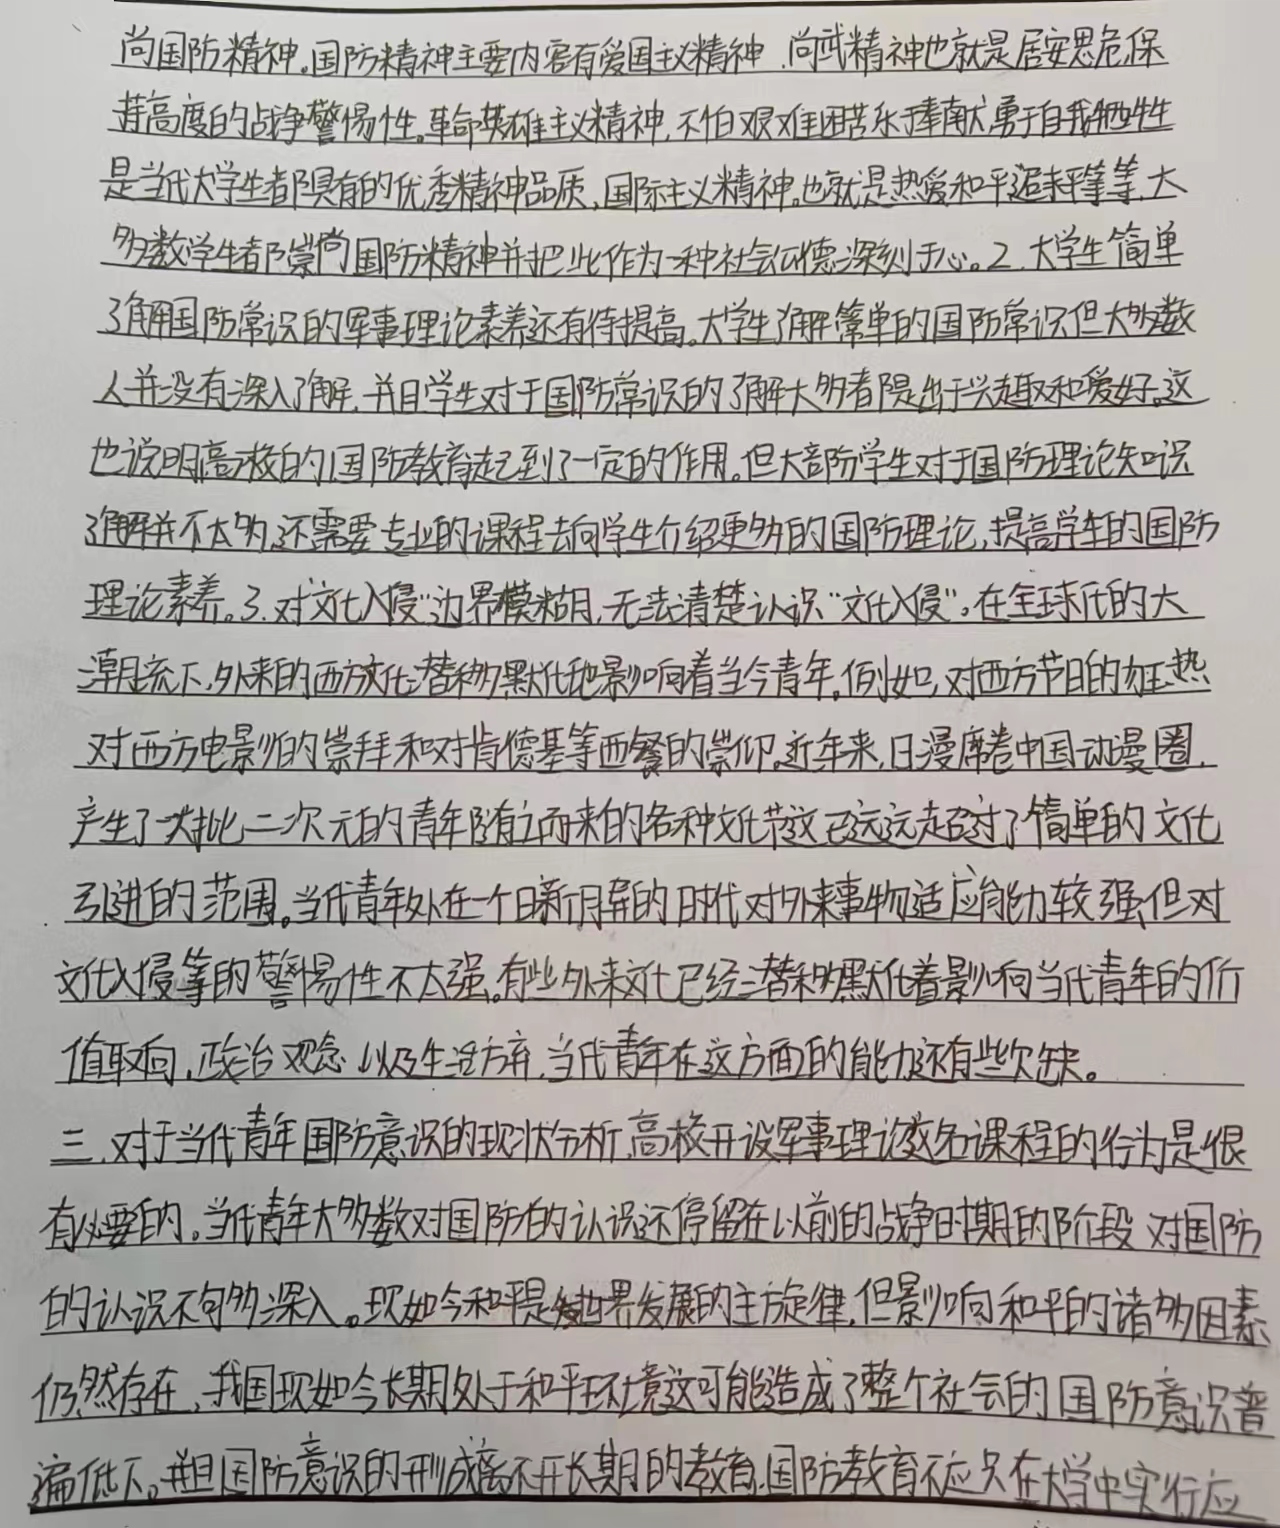 尚国防精神。国防精神主要内容有爱国主义精神、尚武精神也就是居安思危,保
持高度的战争警惕性。革命英雄主义精神,不怕艰难困苦乐于奉献勇于自我牺牲
是当代大学生都具有的优秀精神品质,国际主义精神。也就是热爱和平追求平等等,大
多数学生都崇尚国防精神并把此作为一种社会公德深刻于心。2.大学生简单
了解国防常识的军事理论素养还有待提高。大学生了解简单的国防常识但大多数
人并没有深入了解,并且学生对于国防常识的了解大多都是出于兴趣和爱好。这
也说明高校的国防教育起到了一定的作用。但大部防学生对于国防理论知识
了解并不太多,还需要专业的课程去向学生介绍更多的国防理论,提高学生的国防
理论素养。3.对“文化入侵”边界模糊,无法清楚认识“文化入侵”。在全球化的大
潮流下,外来的西方文化潜移默化地影响着当今青年。例如,对西方节日的狂热
对西方电影的崇拜和对肯德基等西餐的崇仰。近年来,日漫席卷中国动漫圈,
产生了一大批二次元的青年随之而来的各种文化节这已远远超过了简单的文化
引进的范围。当代青年处在一个日新月异的时代对外来事物适应能力较强,但对
文化入侵等的警惕性不太强。有些外来文化已经潜移默化着影响当代青年的价
值取向,政治观念以及生活方弃,当代青年在这方面的能力还有些欠缺。
三.对于当代青年国防意识的现状分析,高校开设军事理论这名课程的行为是很
有必要的。当代青年大多数对国防的认识还停留在以前的战争时期的阶段 对国防
的认识不句多深入。现如今和平是世界发展的主旋律,但影响和平的诸多因素
仍然存在,我国现如今长期处于和平环境这可能造成了整个社会的国防意识普
遍低下。并且国防意识的形成离不开长期的教育,国防教育不应只在大学中实行应